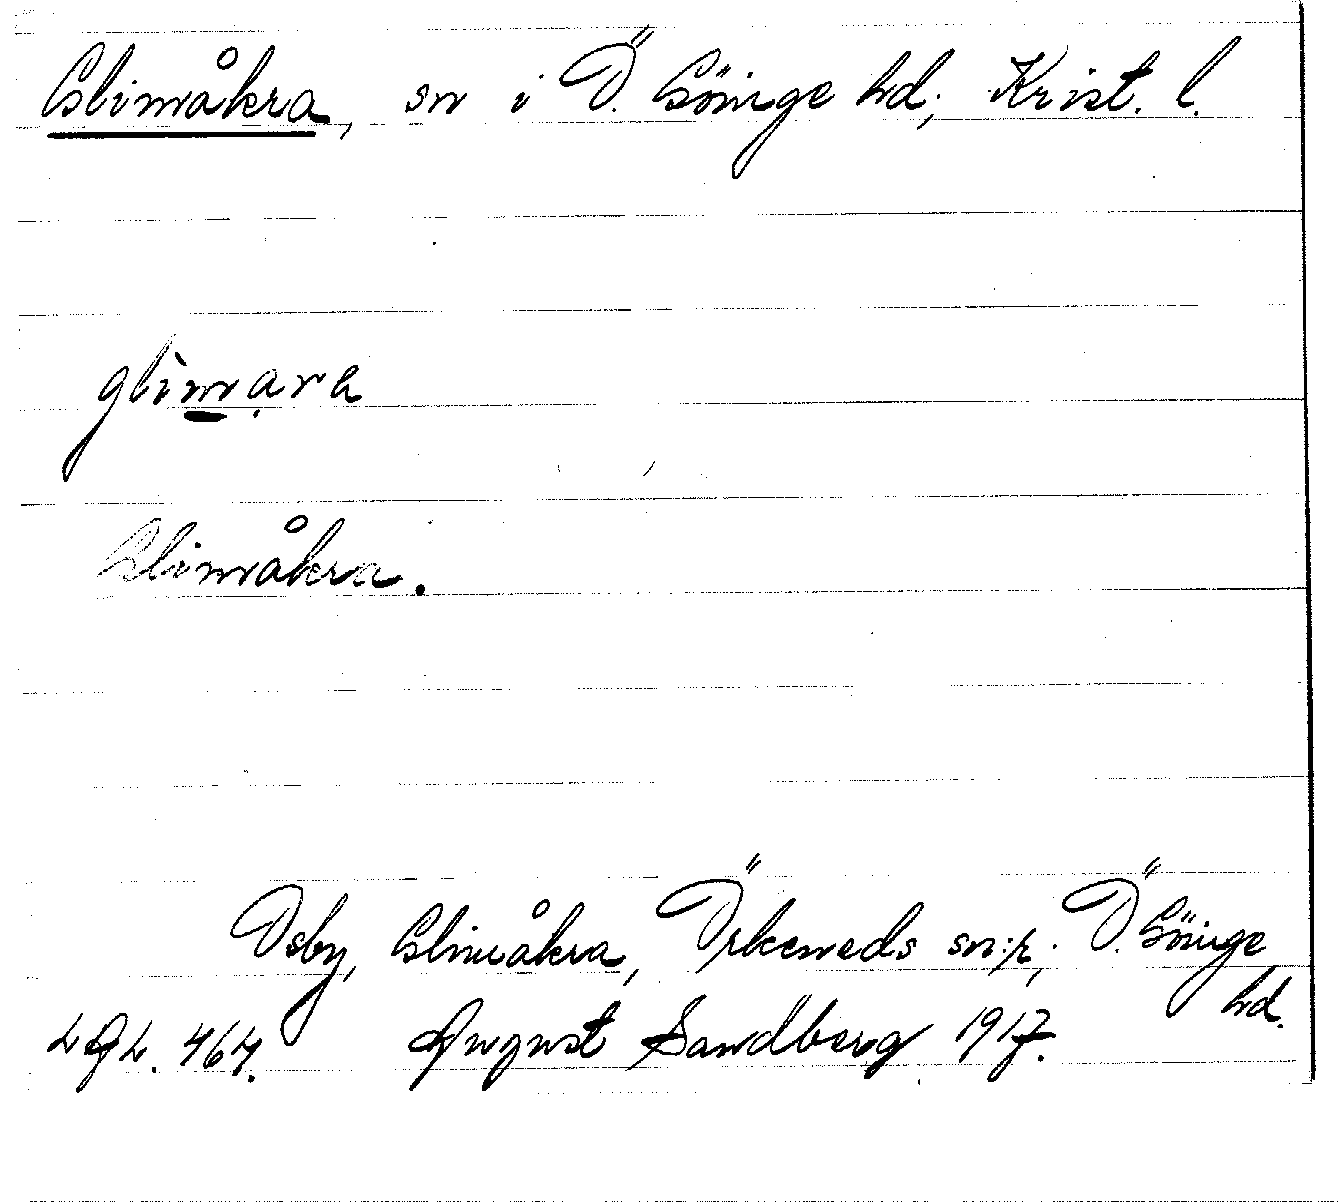 Glimåkra, sn i Ö. Göinge hd; Krist. l.
glìmara
Glimåkra.
Osby, Glimåkra, Örkeneds sn:r, Ö. Göinge
hd.
August Sandberg 1917.